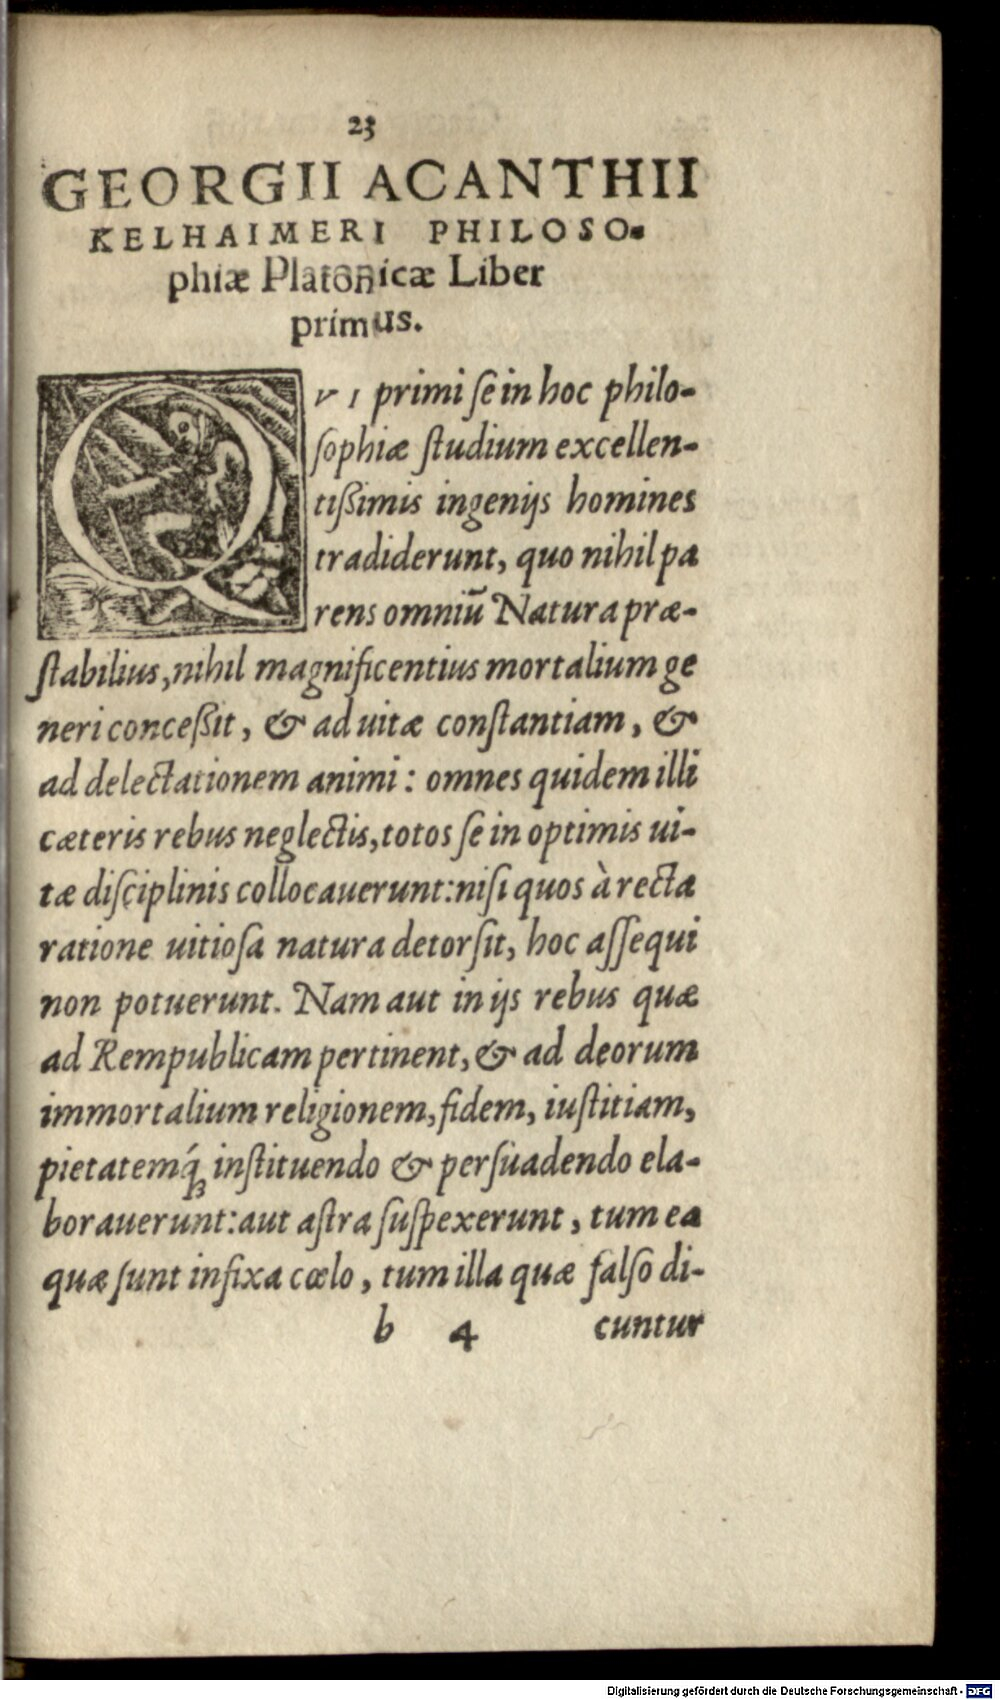 23
GEORGII ACANTHII
KELHAIMERI PHILOSO-
phiæ Platonicæ Liber
primus.
QVI primi ſe in hoc philo-
ſophiæ ſtudium excellen-
tißimis ingenijs homines
tradiderunt, quo nihil pa
rens omniū Natura præ-
ſtabilius, nihil magnificentius mortalium ge
neri conceßit, & ad uitæ conſtantiam, &
ad delectationem animi: omnes quidem illi
cæteris rebus neglectis, totos ſe in optimis ui-
tæ diſciplinis collocauerunt: niſi quos à recta
ratione uitioſa natura detorſit, hoc aſſequi
non potuerunt. Nam aut in ijs rebus quæ
ad Rempublicam pertinent, & ad deorum
immortalium religionem, fidem, iuſtitiam,
pietatemq́ꝫ inſtituendo & perſuadendo ela-
borauerunt: aut aſtra ſuſpexerunt, tum ea
quæ ſunt infixa cœlo, tum illa quæ falſo di-
b 4 cuntur
Digitalisierung gefördert durch die Deutsche Forschungsgemeinschaft - DFG